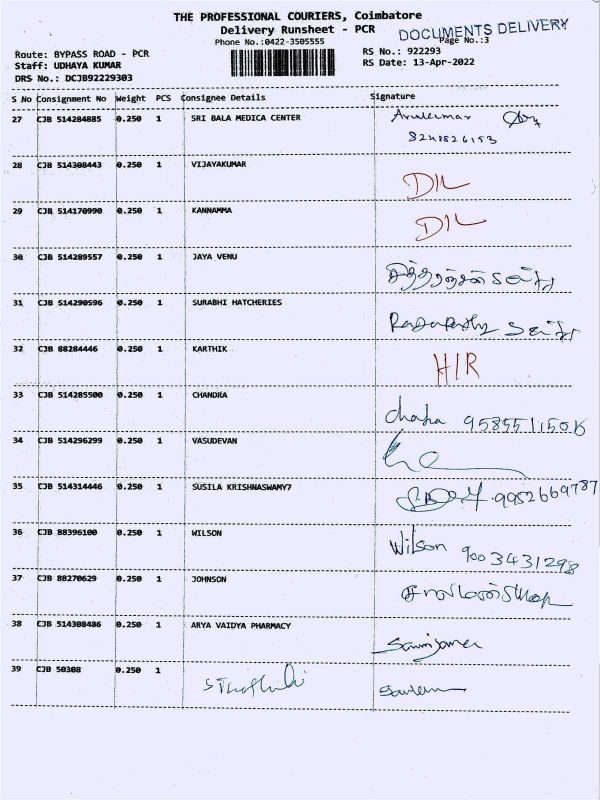 THE PROFESSIONAL COURIERS, Coimbatore
Delivery Runsheet - PCR
DOCUMENTS DELIVERY
Phone No.:0422-3505555
Page No.:3
Route: BYPASS ROAD - PCR
RS No.: 922293
Staff: UDHAYA KUMAR
RS Date: 13-Apr-2022
DRS No.: DCJB92229303
S No Consignment No Weight PCS Consignee Details Signature
27 CJB 514284885 0.250 1 SRI BALA MEDICA CENTER
28 CJB 514308443 0.250 1 VIJAYAKUMAR D/L
29 CJB 514170990 0.250 1 KANNAMMA D/L
30 CJB 514289557 0.250 1 JAYA VENU
31 CJB 514290596 0.250 1 SURABHI HATCHERIES
32 CJB 88284446 0.250 1 KARTHIK H/R
33 CJB 514285500 0.250 1 CHANDRA
34 CJB 514296299 0.250 1 VASUDEVAN
35 CJB 514314446 0.250 1 SUSILA KRISHNASWAMY7 9952669787
36 CJB 88396100 0.250 1 WILSON Wilson 9003431298
37 CJB 88270629 0.250 1 JOHNSON
38 CJB 514308486 0.250 1 ARYA VAIDYA PHARMACY
39 CJB 50308 0.250 1